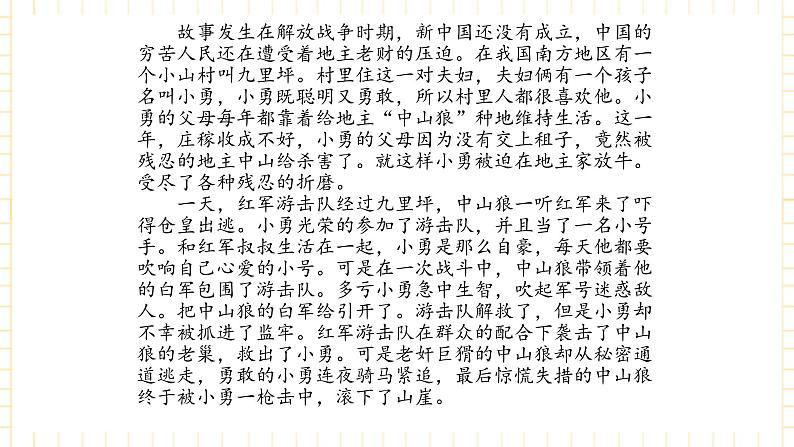 故事发生在解放战争时期，新中国还没有成立，中国的
穷苦人民还在遭受着地主老财的压迫。在我国南方地区有一
个小山村叫九里坪。村里住这一对夫妇，夫妇俩有一个孩子
名叫小勇，小勇既聪明又勇敢，所以村里人都很喜欢他。小
勇的父母每年都靠着给地主“中山狼”种地维持生活。这一
年，庄稼收成不好，小勇的父母因为没有交上租子，竟然被
残忍的地主中山给杀害了。就这样小勇被迫在地主家放牛。
受尽了各种残忍的折磨。
一天，红军游击队经过九里坪，中山狼一听红军来了吓
得仓皇出逃。小勇光荣的参加了游击队，并且当了一名小号
手。和红军叔叔生活在一起，小勇是那么自豪，每天他都要
吹响自己心爱的小号。可是在一次战斗中，中山狼带领着他
的白军包围了游击队。多亏小勇急中生智，吹起军号迷惑敌
人。把中山狼的白军给引开了。游击队解救了，但是小勇却
不幸被抓进了监牢。红军游击队在群众的配合下袭击了中山
狼的老巢，救出了小勇。可是老奸巨猾的中山狼却从秘密通
道逃走，勇敢的小勇连夜骑马紧追，最后惊慌失措的中山狼
终于被小勇一枪击中，滚下了山崖。